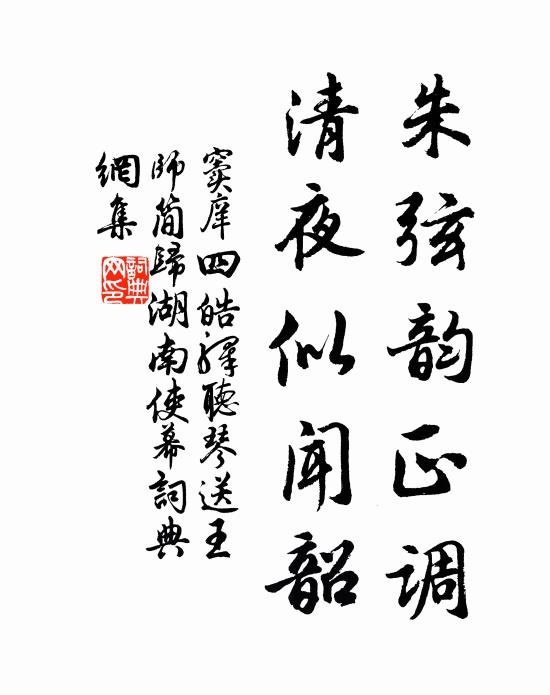 朱弦韵正调
清夜似闻韶
窦庠四皓驿聽琴送王
師简歸湖南使幕詞典
網集
詞典
网印